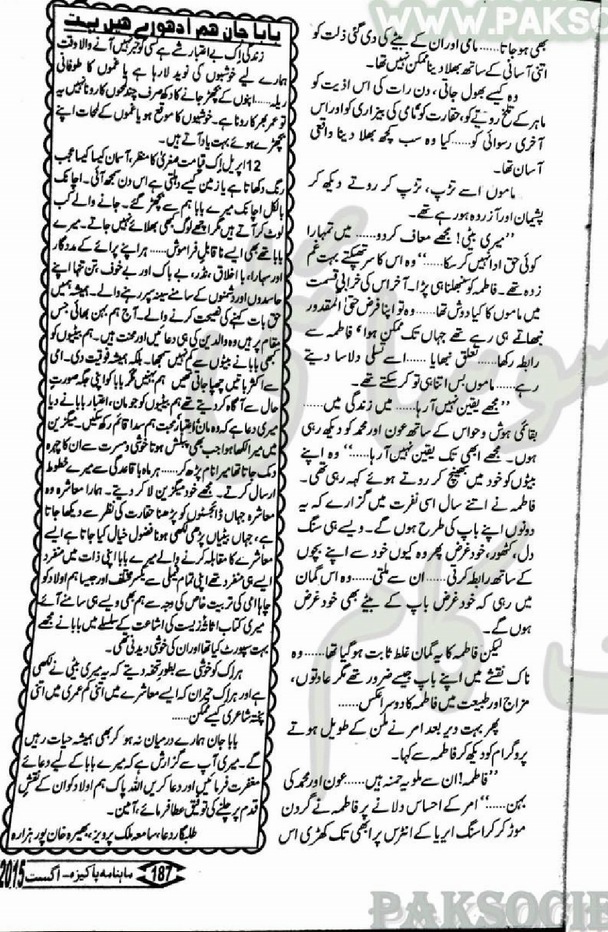 WWW.PAKSOC
بھی ہوجاتا...... مامی اور ان کے بیٹے کی دی گئی ذلت کو
اتنی آسانی کے ساتھ بھلا دینا ممکن نہیں تھا۔
وہ کیسے بھول جاتی، دن رات کی اس اذیت کو
ماہر کے تلخ رویے کو، حقارت کو، مامی کی بیزاری کو اور اس
آخری رسوائی کو...... کیا وہ سب کچھ بھلا دینا واقعی
آسان تھا۔
ماموں اسے تڑپ، تڑپ کر روتے دیکھ کر
پشیمان اور آزردہ ہو رہے تھے۔
”میری بیٹی! مجھے معاف کردو...... میں تمہارا
کوئی حق ادا نہیں کرسکا......“ وہ اس کا سر تھپکتے بہت غم
زدہ تھے۔ فاطمہ کو سنبھلنا ہی پڑا۔ آخر اس کی خرابی قسمت
میں ماموں کا کیا دوش تھا...... وہ تو اپنا فرض حتیٰ المقدور
نبھاتے ہی رہے تھے جہاں تک ممکن ہوا، فاطمہ سے
رابطہ رکھا...... تعلق نبھایا...... اسے تسلی دلاسا دیتے
رہے...... ماموں بس اتنا ہی تو کرسکتے تھے۔
”مجھے یقین نہیں آرہا...... میں زندگی میں......
بقائمی ہوش و حواس کے ساتھ عون اور محمد کو دیکھ رہی
ہوں۔ مجھے ابھی تک یقین نہیں آرہا......“ وہ اپنے
بیٹوں کو خود میں بھینچ کر روتے ہوئے کہہ رہی تھی۔
فاطمہ نے اتنے سال اسی نفرت میں گزارے کہ یہ
دونوں اپنے باپ کی طرح ہوں گے۔ ویسے ہی سنگ
دل، کٹھور، خود غرض پھر وہ کیوں خود سے اپنے بچوں
کے ساتھ رابطہ کرتی...... ان سے ملتی...... وہ اس گمان
میں رہی کہ خود غرض باپ کے بیٹے بھی خود غرض
ہوں گے۔
لیکن فاطمہ کا یہ گمان غلط ثابت ہوگیا تھا...... وہ
ناک نقشے میں اپنے باپ جیسے ضرور تھے مگر عادتوں،
مزاج اور طبیعت میں فاطمہ کا دوسرا عکس......
پھر بہت دیر بعد امر نے ملن کے طویل ہوتے
پروگرام کو دیکھ کر فاطمہ سے کہا۔
”فاطمہ! ان سے ملو یہ حمنہ ہیں...... عون اور محمد کی
بہن......“ امر کے احساس دلانے پر فاطمہ نے گردن
موڑ کر کراسنگ ایریا کے انٹرس پر ابھی تک کھڑی اس
بابا جان ہم ادھورے ہیں بہت
زندگی اک بے اعتبار شے ہے کسی کو خبر نہیں آنے والا وقت
ہمارے لیے خوشیوں کی نوید لا رہا ہے یا غموں کا طوفانی
ریلہ...... اپنوں کے بچھڑ جانے کا دکھ صرف چند لمحوں کا رونا نہیں یہ
تو عمر بھر کا رونا ہے۔ خوشیوں کا موقع ہو یا غموں کے لمحات اپنے
بچھڑے ہوئے بہت یاد آتے ہیں۔
12 اپریل اک قیامت صغریٰ کا منظر، آسمان کیسا کیسا عجب
رنگ دکھاتا ہے یا زمین کیسے دہلتی ہے اس دن سمجھ آئی۔ اچانک
بالکل اچانک میرے بابا ہم سے بچھڑ گئے۔ جانے والے کب
لوٹ کر آتے ہیں مگر اچھے لوگ بھی بھلائے نہیں جاتے۔ میرے
بابا تھے بھی ایسے ناقابل فراموش...... ہر اپنے پرائے کے مددگار
اور سہارا، با اخلاق، نڈر، بے باک اور بے خوف، تن تنہا اپنے
حاسدوں اور دشمنوں کے سامنے سینہ سپر رہنے والے۔ ہمیشہ ہمیں
حق بات کہنے کی نصیحت کرنے والے۔ آج ہم بہن بھائی جس
مقام پر ہیں وہ والدین کی ہی دعائیں اور محنت ہیں۔ ہم بیٹیوں کو
کبھی بابا نے بیٹوں سے کم نہیں سمجھا۔ بلکہ ہمیشہ فوقیت دی۔ امی
سے اکثر باتیں چھپا جاتی تھیں ہم بہنیں مگر بابا کو اپنی جگہ صورتِ
حال سے آگاہ کردیتے تھے ہم بیٹیوں کو جو مان، اعتبار بابا نے دیا
میری دعا ہے کہ وہ مان، اعتبار، محبت ہم سدا قائم رکھ سکیں۔ میگزین
میں میرا لکھا ہوا جب بھی پبلش ہوتا خوشی و مسرت سے ان کا چہرہ
دمک جاتا تھا میرا نام پڑھ کر...... ہر ماہ باقاعدگی سے میرے خطوط
ارسال کرتے۔ مجھے خود میگزین لاکر دیتے۔ ہمارا معاشرہ وہ
معاشرہ جہاں ڈائجسٹوں کو پڑھنا حقارت کی نظر سے دیکھا جاتا
ہے، جہاں بیٹیاں پڑھی لکھی ہونا فضول خیال کیا جاتا ہے ایسے
معاشرے کا مقابلہ کرنے والے میرے بابا اپنی ذات میں منفرد
ایسے ہی منفرد تھے اپنی تمام فیملی سے یکسر مختلف اور جیسا ہم اولاد کو
چاہا امی کی تربیت خاص کی وجہ سے ہم بھی ویسے ہی سامنے آئے
میری کتاب اثاثہ زیست کی اشاعت کے سلسلے میں بابا نے مجھے
بہت سپورٹ کیا تھا اور ان کی خوشی دیدنی تھی۔
ہر اک کو خوشی سے بطور تحفہ دیتے کہ یہ میری بیٹی نے لکھی
ہے اور ہر اک حیران کہ ایسے معاشرے میں اتنی کم عمری میں اتنی
پختہ شاعری کیسے ممکن......
بابا جان ہمارے درمیان نہ ہو کر بھی ہمیشہ حیات رہیں
گے۔ میری آپ سے گزارش ہے کہ میرے بابا کے لیے دعائے
مغفرت فرمائیں اور دعا کریں اللہ پاک ہم اولاد کو ان کے نقشِ
قدم پر چلنے کی توفیق عطا فرمائے، آمین۔
طلبگار دعا، سامعہ ملک پرویز، بھیرہ خان پور ہزارہ
187 ماہنامہ پاکیزہ۔ اگست 2015
PAKSOCIE